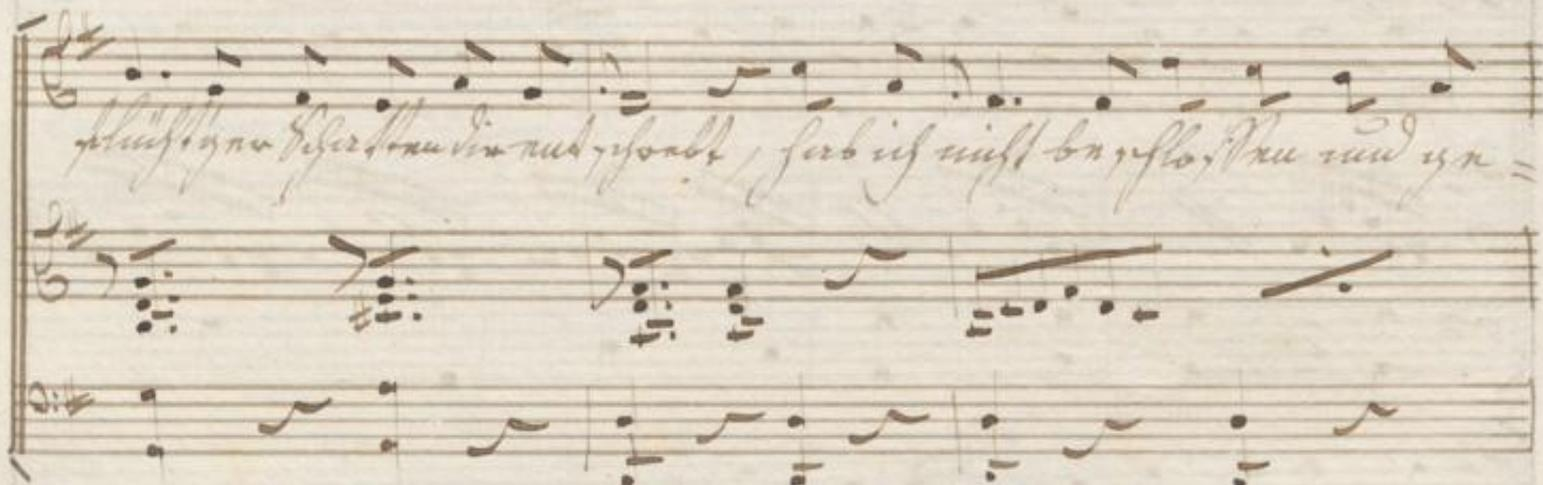 flüchtger Schatten dir entschwebt, hab ich nicht beschlossen und ge=